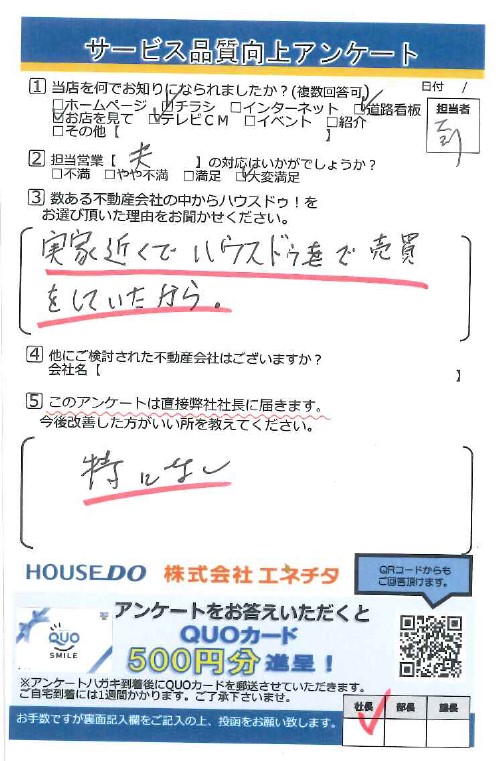 サービス品質向上アンケート
1 当店を何でお知りになられましたか？(複数回答可)
日付 /
□ホームページ ☑チラシ □インターネット ☑道路看板
担当者
☑お店を見て ☑テレビCM □イベント □紹介
□その他【 】
2 担当営業【 】の対応はいかがでしょうか？
□不満 □やや不満 □満足 ☑大変満足
3 数ある不動産会社の中からハウスドゥ！を
お選び頂いた理由をお聞かせください。
実家近くでハウスドゥ
で売買
をしていたから。
4 他にご検討された不動産会社はございますか？
会社名【 】
5 このアンケートは直接弊社社長に届きます。
今後改善した方がいい所を教えてください。
特になし
HOUSEDO 株式会社 エネチタ
QRコードからも
ご回答頂けます。
アンケートをお答えいただくと
QUOカード
500円分 進呈！
QUO
SMILE
※アンケートハガキ到着後にQUOカードを郵送させていただきます。
ご自宅到着には1週間かかります。ご了承下さいませ。
お手数ですが裏面記入欄をご記入の上、投函をお願い致します。
社長 部長 課長